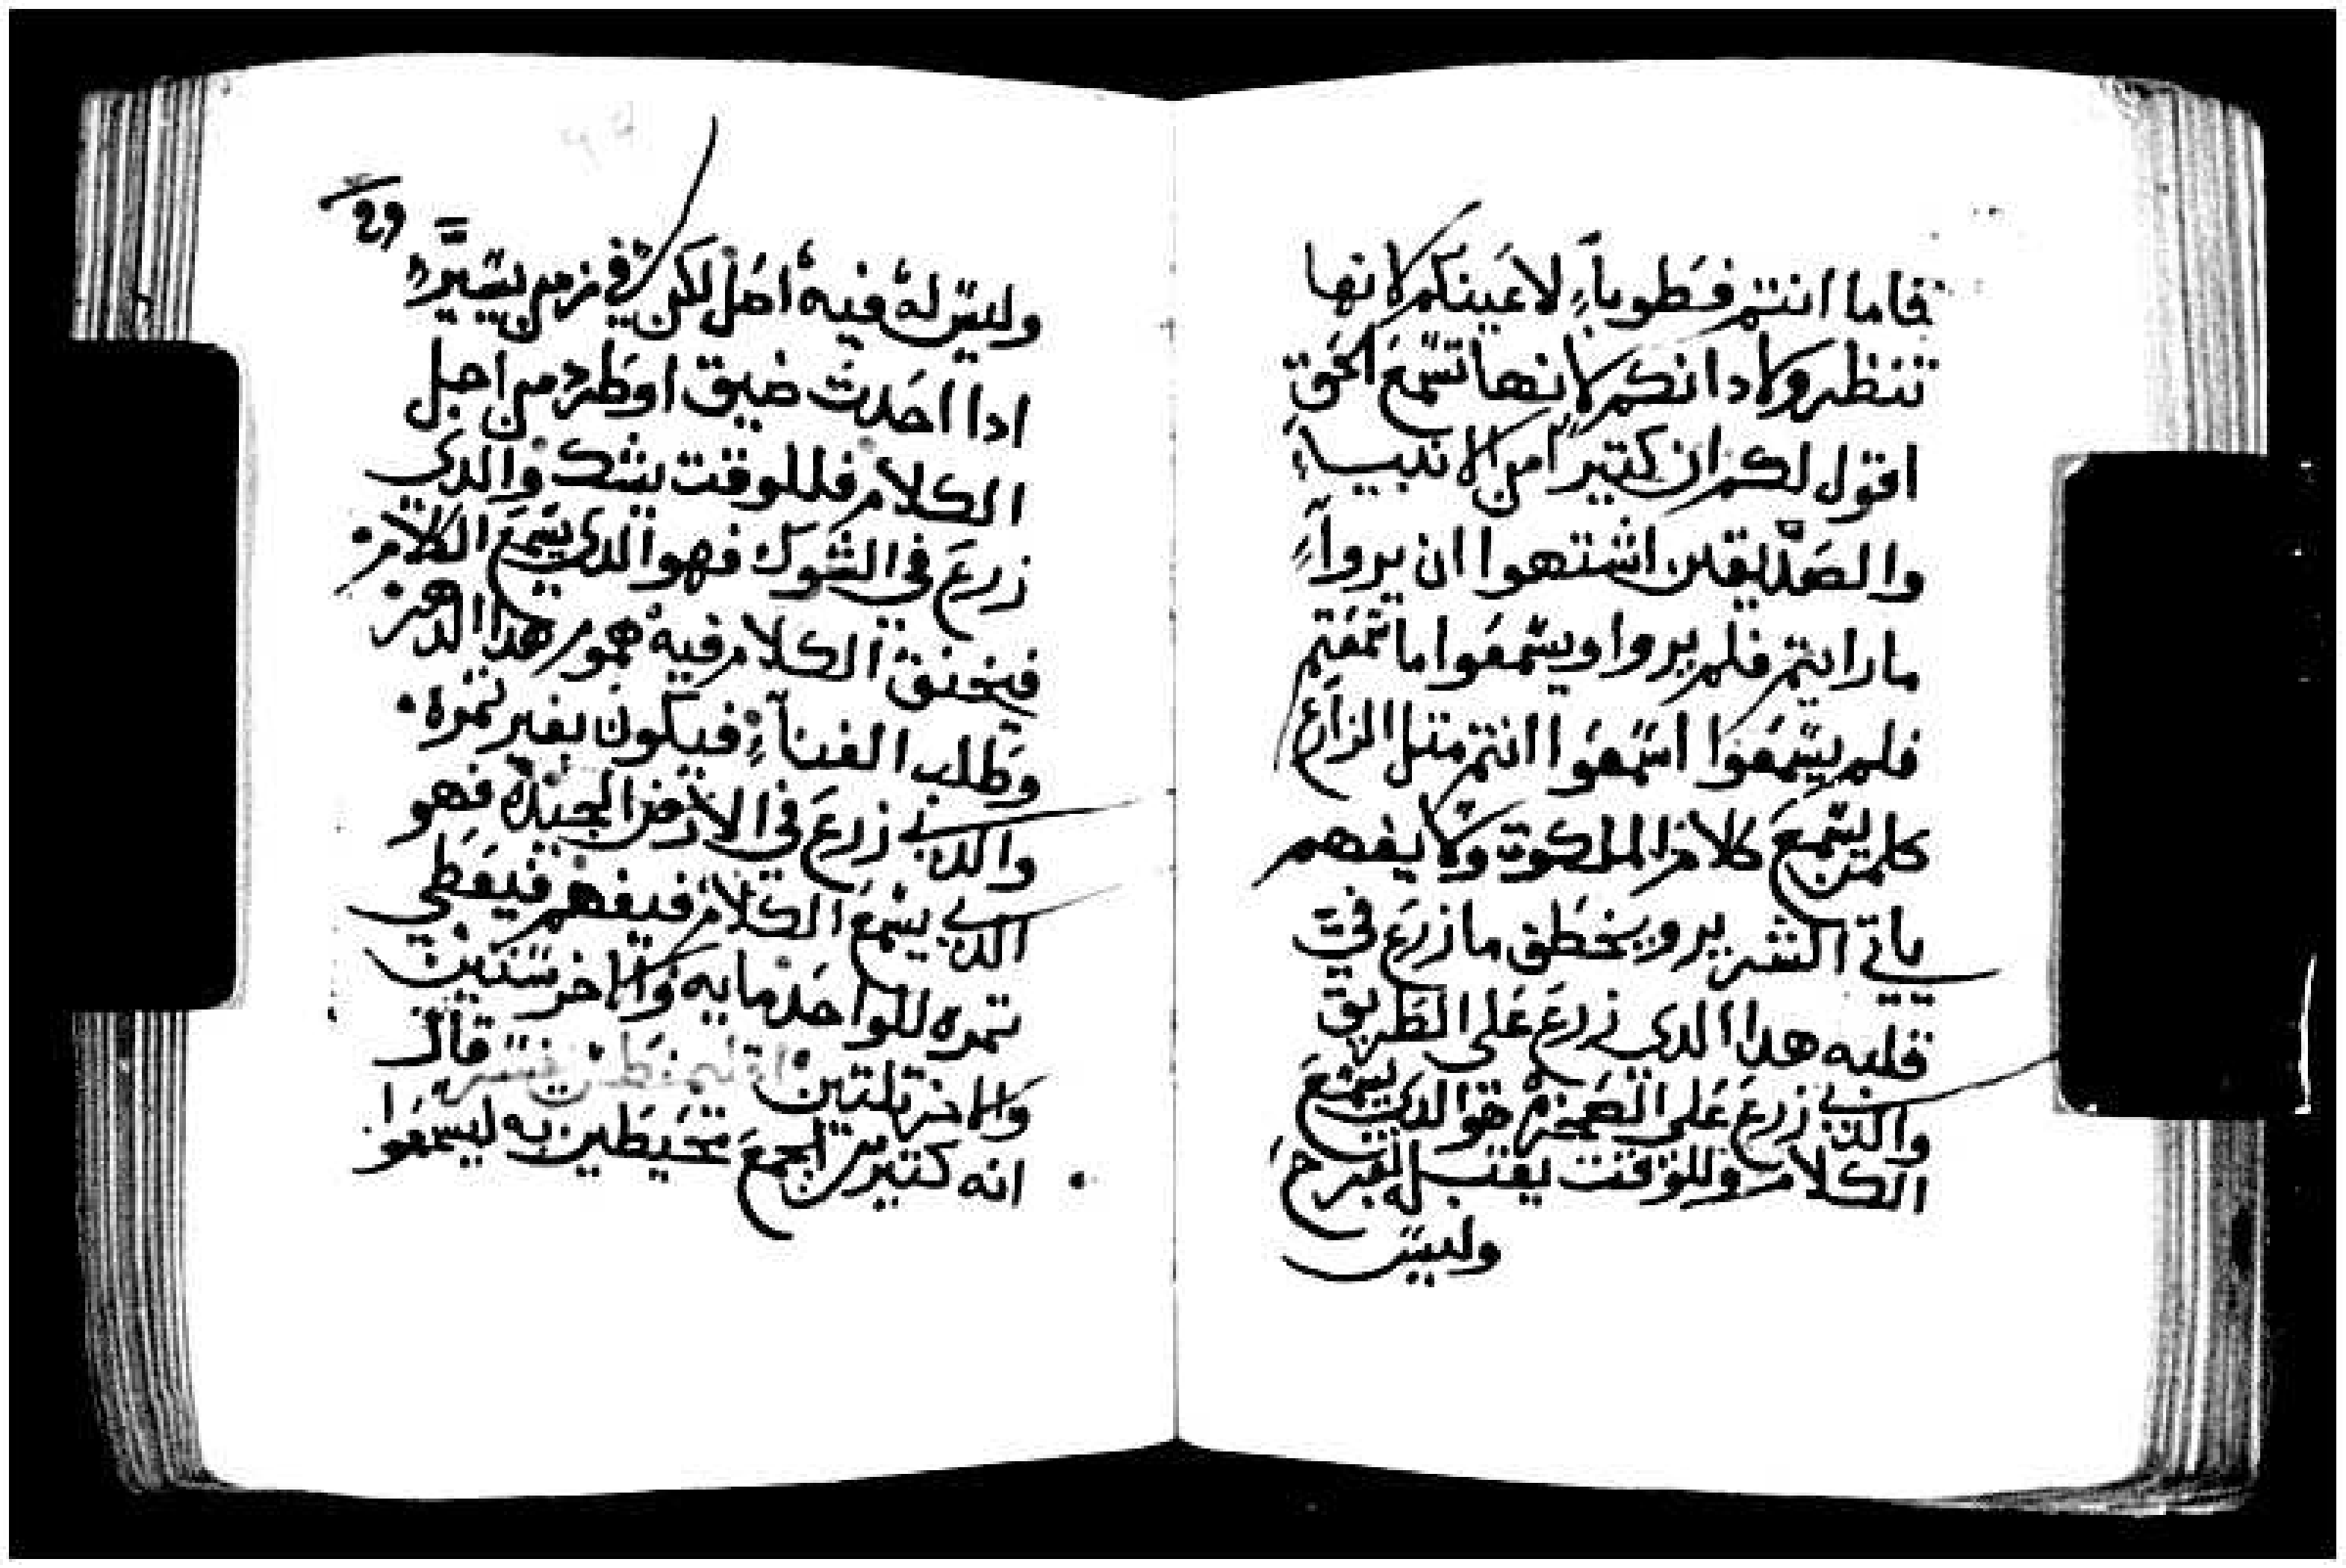 فاما انتم فطوباً لاعينكم لانها
تنظر ولادانكم لانها تسمع الحق
اقول لكم ان كتيراً من الانبياء
والصديقين اشتهوا ان يروا
مارايتم فلم يروا ويسمعوا ماسمعتم
فلم يسمعوا اسمعوا انتم متل الزارع
كلمن يسمع كلام الملكوت ولا يفهم
ياتي الشرير ويخطف مازرع في
قلبه هدا الدي زرع على الطريق
والدي زرع على الصخره هو الدي يسمع
الكلام وللوقت يقبله بفرح
وليس
29
وليس له فيه اصل لكن في زمن يسير
ادا احدت ضيق او طرد من اجل
الكلام فللوقت يشك والدي
زرع في الشوك فهو الدي يسمع الكلام
فيخنق الكلام فيه هموم هدا الدهر
وطلب الغناء فيكون بغير تمره
والدي زرع في الارض الجيده فهو
الدي يسمع الكلام فيفهم فيعطي
تمره للواحد مايه والاخر ستين
والاخر تلتين قال
انه كتير من الجمع محيطين به ليسمعوا